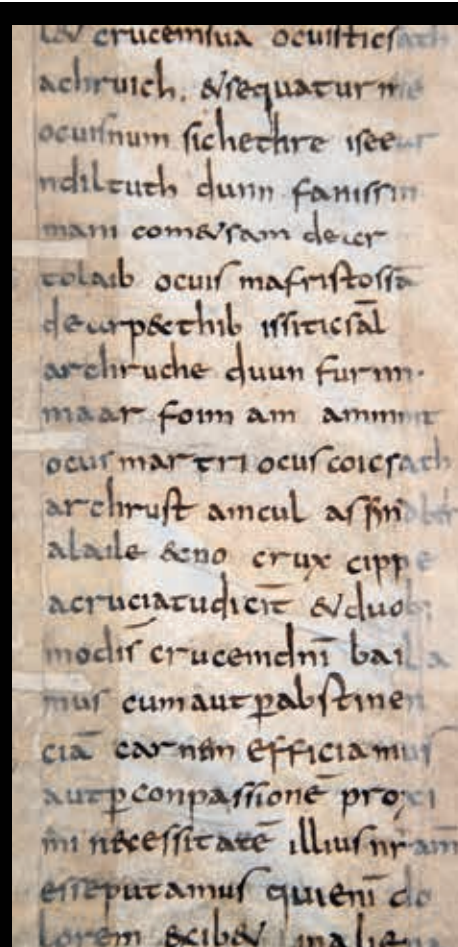 l& crucemsua ocuisticsath
achruich. &sequatur me
ocuisnum sichethre iseeur
ndiltuth dunn fanissin
mani come&rsam de ar
tolaib ocuis mafristossā
dearp&cthib issiticsāl
archruche duun furnn·
maar foim am ammint
ocus martri ocus coicsath
archrust amcul
alaile &no crux cippe
acruciatudicit̄ &duob;
modis̄ crucemdnī baila
mus cumaut ꝑabstinen
ciā carnem efficiamus
autꝑconpassionē proxi
mi necessitatē illiusnr̄am
esseputamus quienī do
lorem &cib& inalie